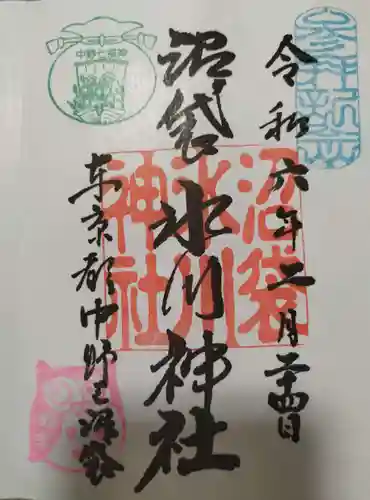 令和六年二月二十四日
沼袋氷川神社
東京都中野区沼袋
沼袋
氷川
神社
中野七福神